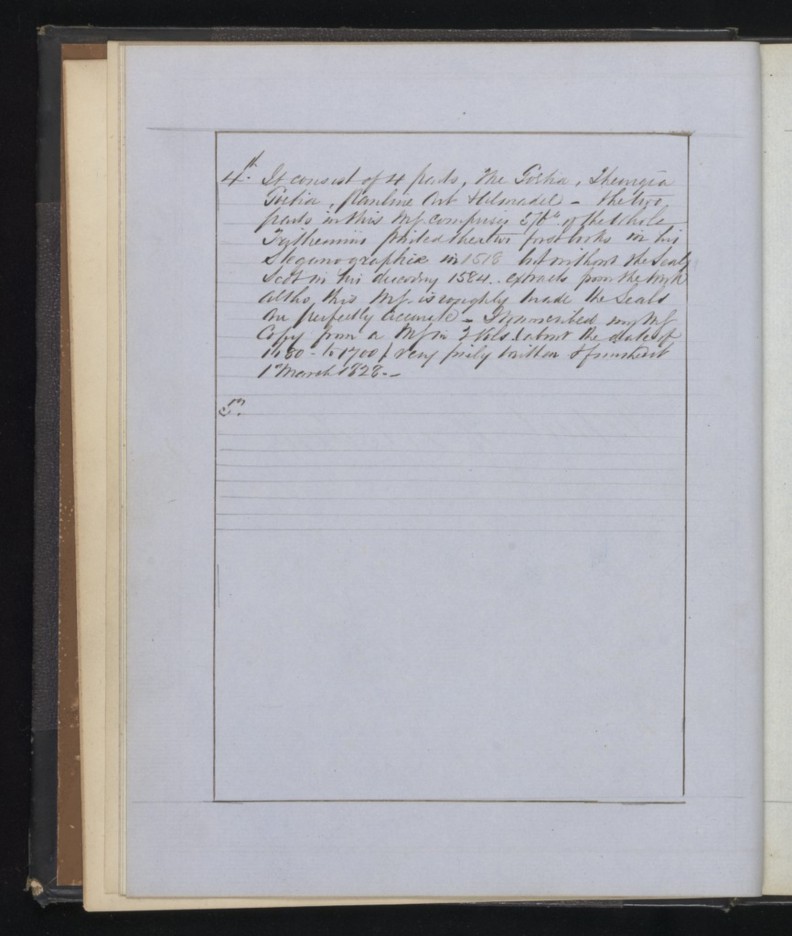 4th. It consist of 4 parts, The Goetia, Theurgia
Goetia, Pauline Art & Almadel - The two
parts in this MS. comprise of the Whole
Trithemius printed these two first books in his
Steganographia in 1518 but without the Seals
Scot in his discovery 1584. extracts from the Work
altho this MS. is roughly made the Seals
are perfectly accurate - I transcribed my MS
Copy from a MS in 2 Vols. about the date of
to 1700 / very written & finished it
1st March 1828. -
5th.